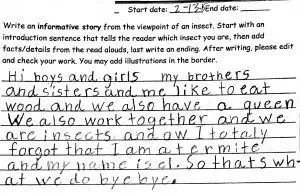 Start date: 2-13 End date:
Write an informative story from the viewpoint of an insect. Start with an
introduction sentence that tells the reader which insect you are, then add
facts/details from the read alouds, last write an ending. After writing, please edit
and check your work. You may add illustrations in the border.
Hi boys and girls my brothers
and sisters and me like to eat
wood and we also have a queen
We also work together and we
are insects and ow I totaly
forgot that I am a termite
and my name is cl. So thats wh-
at we do bye bye.